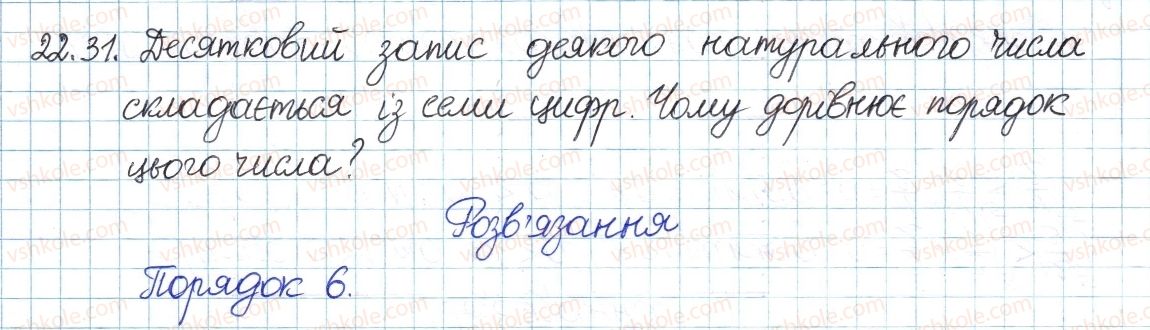 22.31. Десятковий запис деякого натурального числа
складається із семи цифр. Чому дорівнює порядок
цього числа?
Розв'язання
Порядок 6.